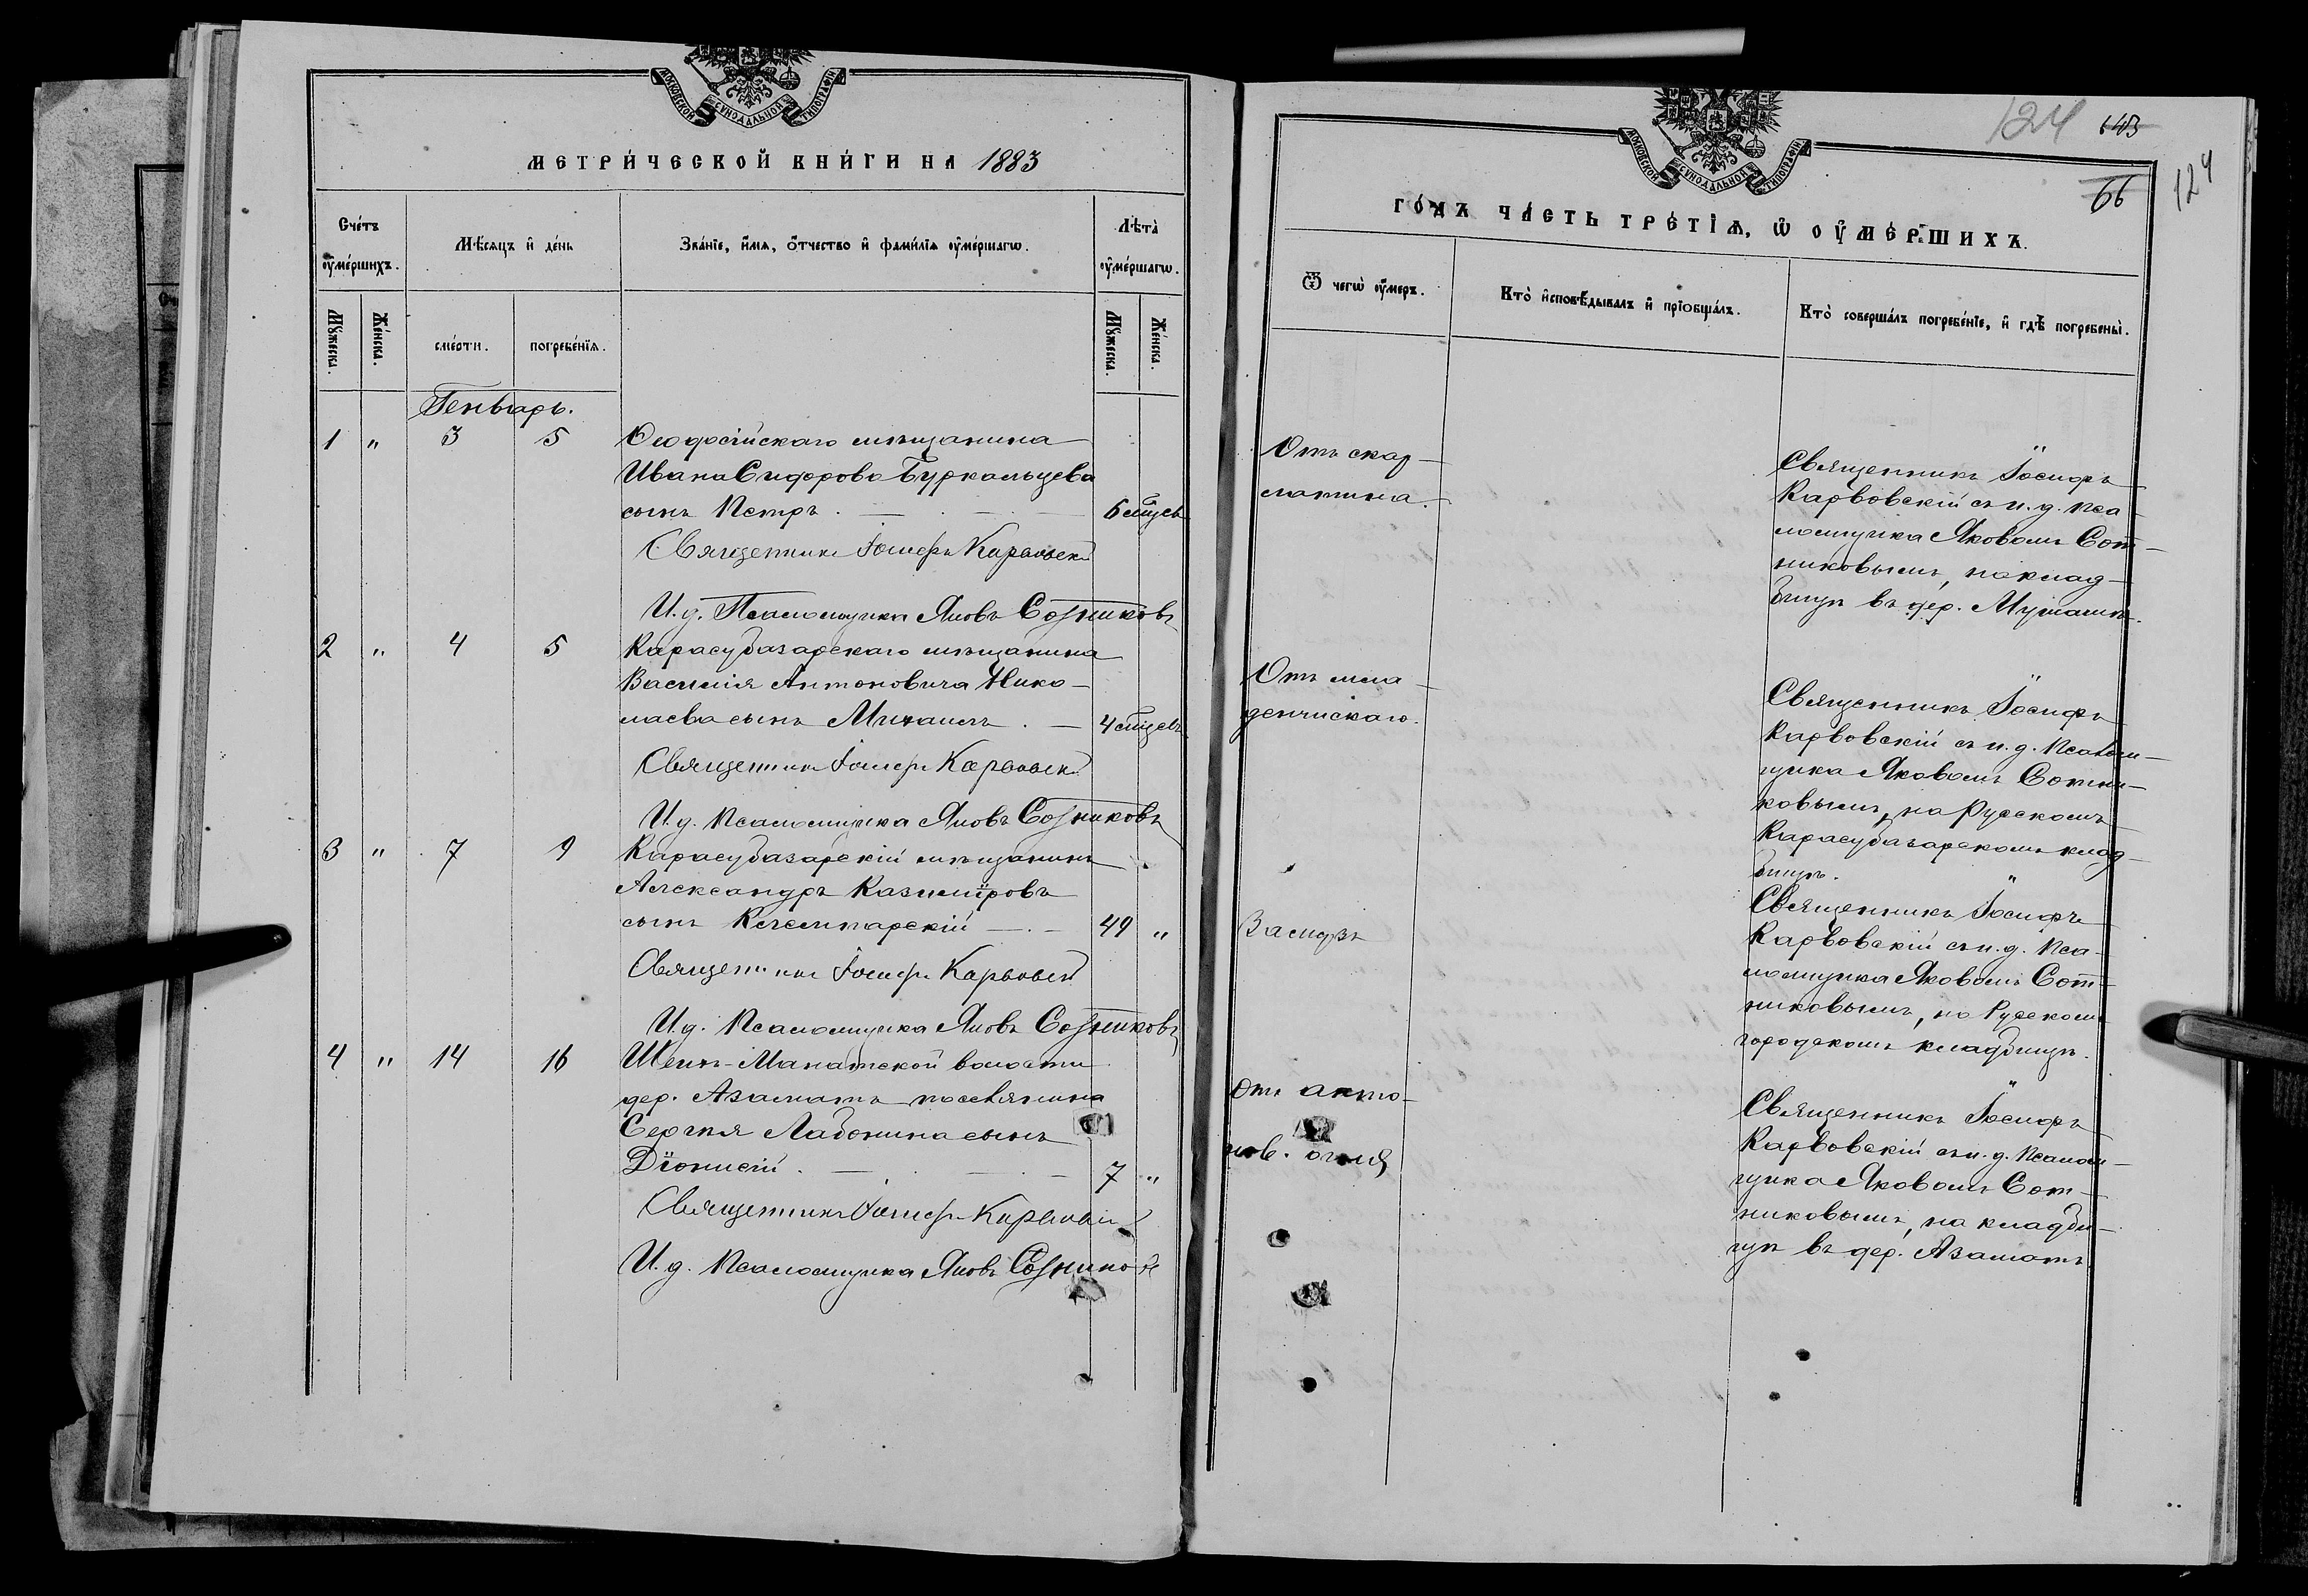 МОСКОВСКОЙ СѴНОДАЛЬНОЙ ТИПОГРАФІИ
МЕТРИ́ЧЕСКОЙ КНИ́ГИ НА 1883
Сче́тъ ᲂу҆ме́ршихъ.
Мѣ́сяцъ и҆ де́нь
Зва́нїе, и҆́мя, ѻ҆́тчество и҆ фами́лїя ᲂу҆ме́ршагѡ.
Лѣта̀ ᲂу҆ме́ршагѡ.
Мꙋ́жеска.
Же́нска.
сме́рти.
погребе́нїя.
Мꙋ́жеска.
Же́нска.
Генварь.
1 " 3 5 Ѳеодосійскаго мѣщанина
Ивана Сидорова Буркальцева
сынъ Петръ. 6 мѣсцевъ
Священникъ Іосифъ Карвовскій
И. д. Псаломщика Яковъ Сотниковъ
2 " 4 5 Карасубазарскаго мѣщанина
Василія Антоновича Нико-
лаева сынъ Михаилъ. 4 мѣсцевъ
Священникъ Іосифъ Карвовскій
И. д. Псаломщика Яковъ Сотниковъ
3 " 7 9 Карасубазарскій мѣщанинъ
Александръ Казиміровъ
сынъ 49 "
Священникъ Іосифъ Карвовскій
И. д. Псаломщика Яковъ Сотниковъ
4 " 14 16 Шеих-Манатской волости
дер. Азаматъ поселянина
Сергѣя Ладонина сынъ
Діонисій. 7 "
Священникъ Іосифъ Карвовскій
И. д. Псаломщика Яковъ Сотниковъ
124 143
66
124
МОСКОВСКОЙ СѴНОДАЛЬНОЙ ТИПОГРАФІИ
ГО́ДЪ ЧА́СТЬ ТРЕ́ТЇѦ, Ѡ҆ ОУ҆МЕ́РШИХЪ.
Ѿ чегѡ̀ ᲂу҆́меръ.
Кто̀ и҆сповѣ́дывалъ и҆ прїобща́лъ.
Кто̀ соверша́лъ погребе́нїе, и҆ гдѣ̀ погребены̀.
Отъ скар-
латина.
Священникъ Іосифъ
Карвовскій съ и. д. Пса-
ломщика Яковомъ Сот-
никовымъ, на клад-
бищѣ въ дер.
Отъ мла-
денческаго.
Священникъ Іосифъ
Карвовскій съ и. д. Псалом-
щика Яковомъ Сотни-
ковымъ, на Русскомъ
Карасубазарскомъ клад-
бищѣ.
Священникъ Іосифъ
Карвовскій съ и. д. Пса-
ломщика Яковомъ Сот-
никовымъ, на Русскомъ
городскомъ кладбищѣ.
Отъ анто-
нов. огня
Священникъ Іосифъ
Карвовскій съ и. д. Псалом-
щика Яковомъ Сот-
никовымъ, на кладби-
щѣ въ дер. Азаматъ